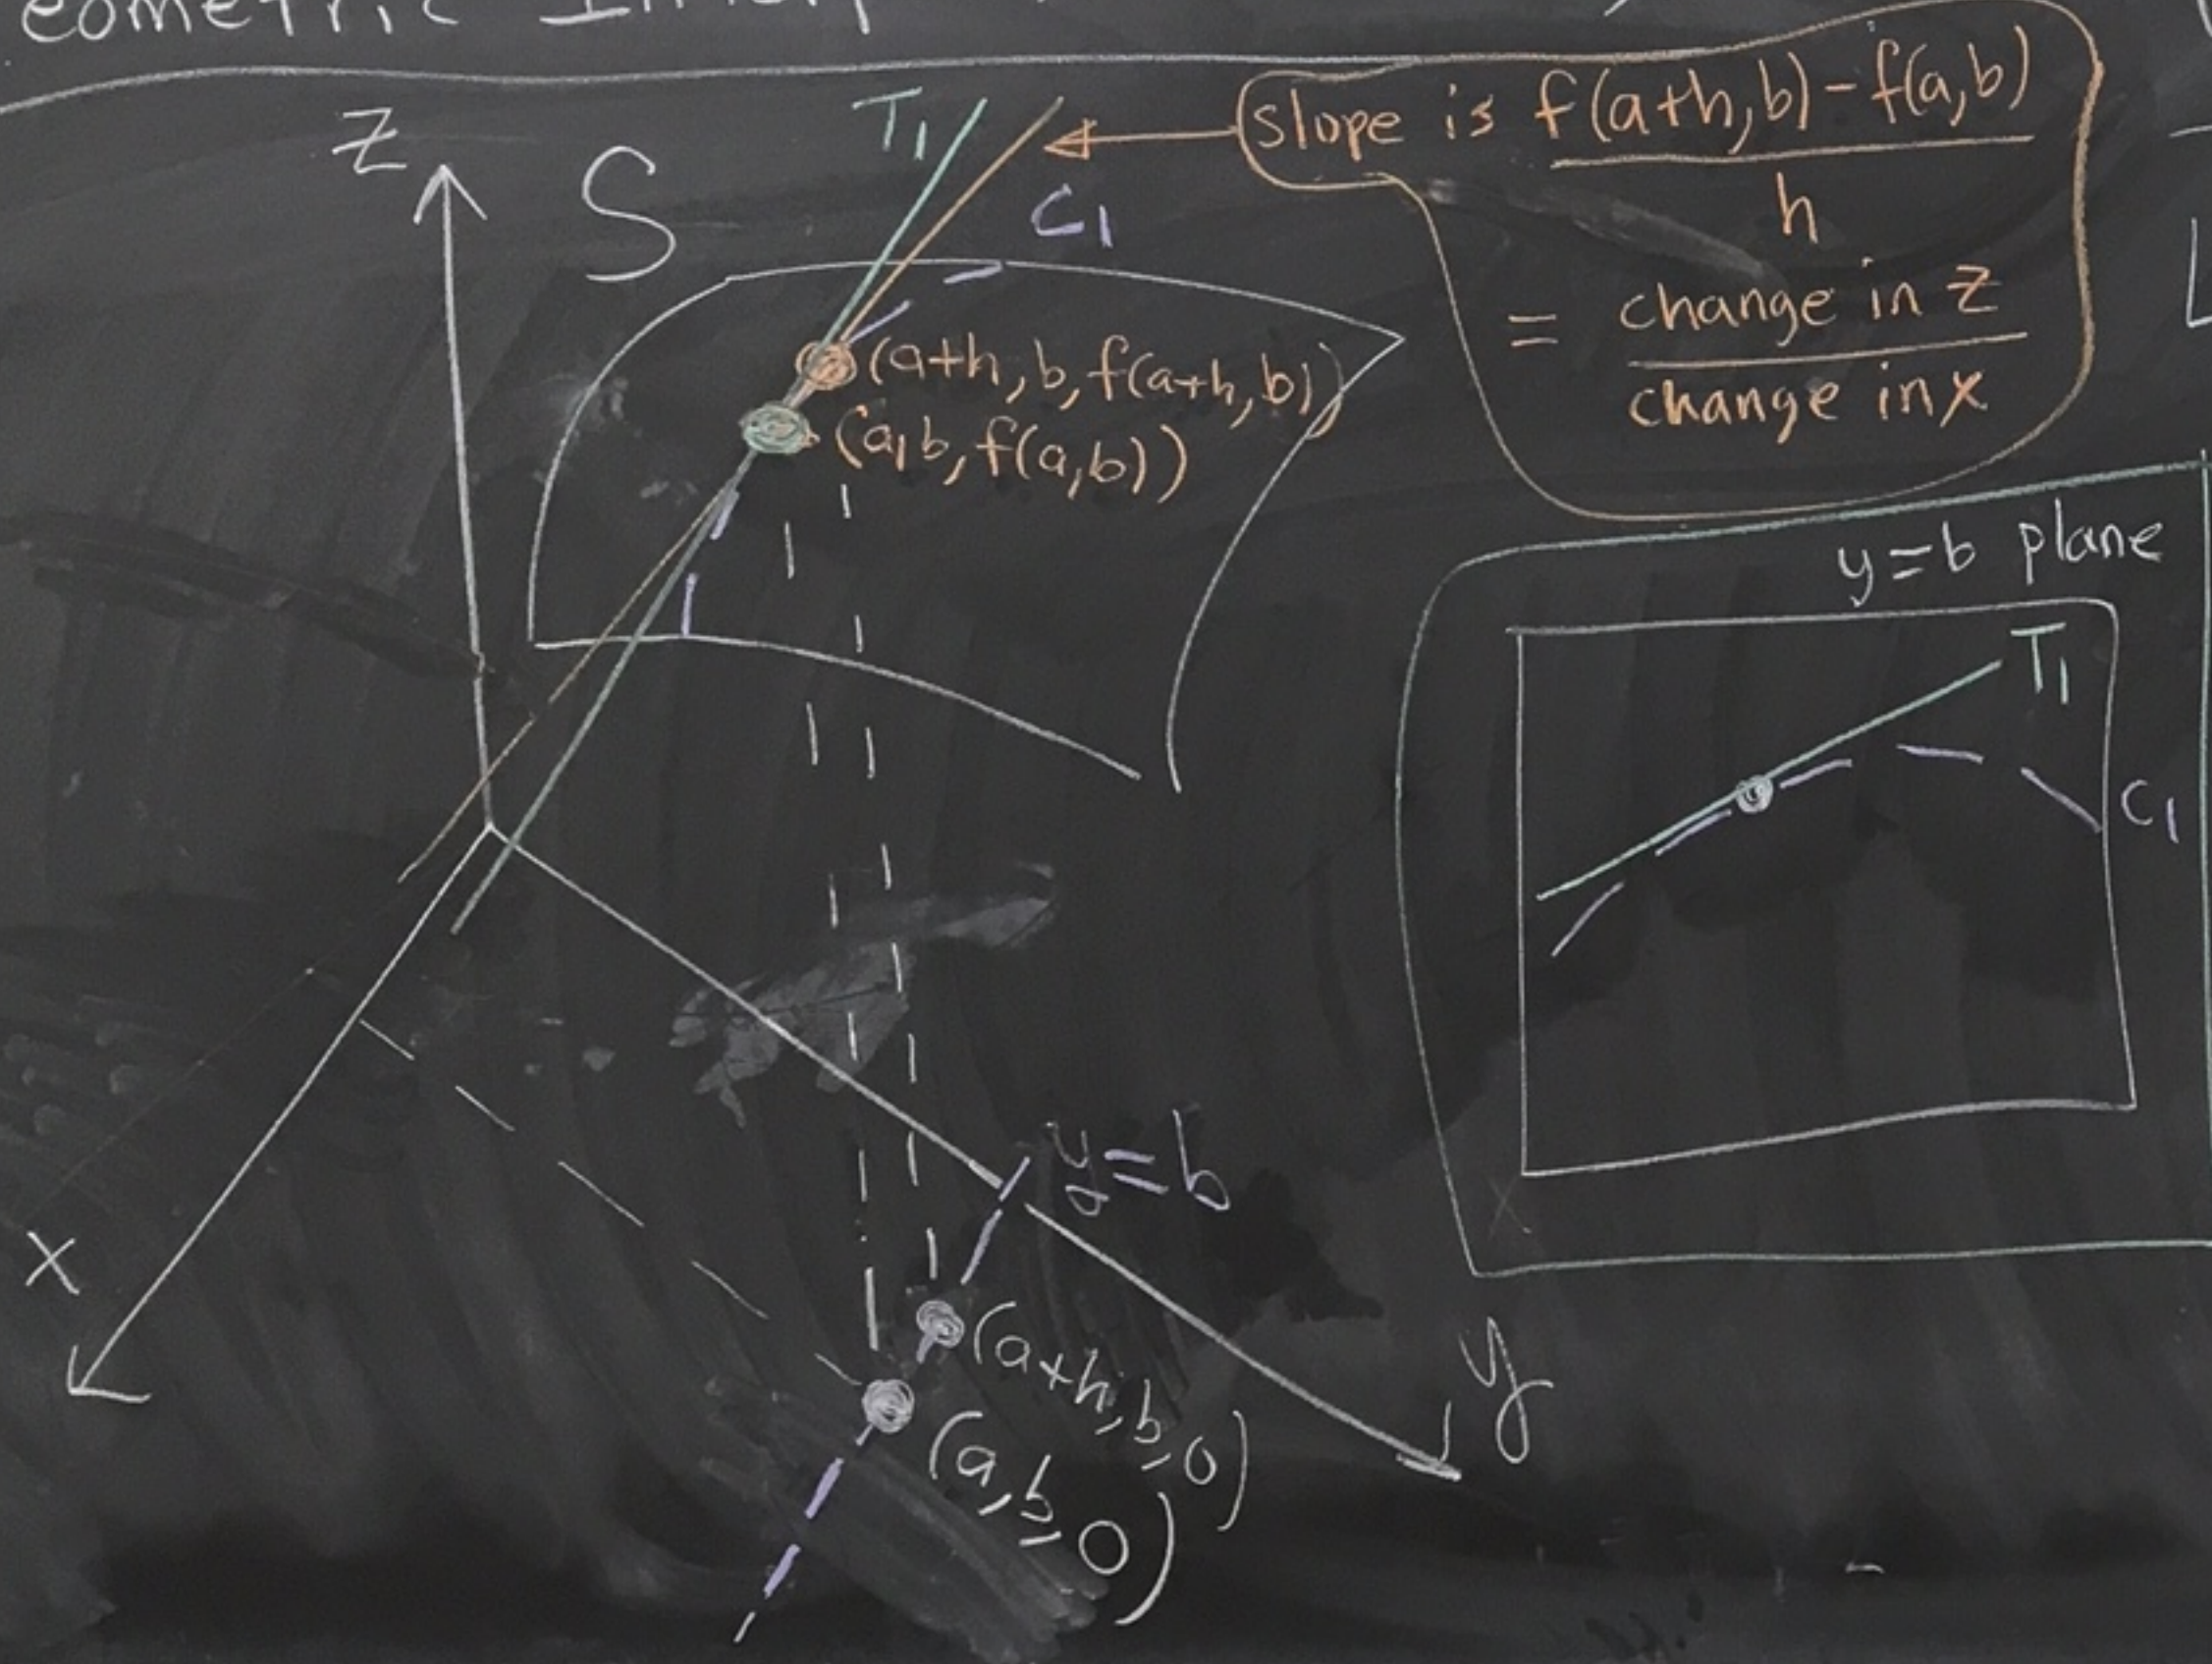 z
S
T1
C1
slope is f(a+h,b)-f(a,b)
h
= change in z
change in x
(a+h,b,f(a+h,b))
(a,b,f(a,b))
y=b plane
T1
C1
y=b
x
y
(a+h,b,0)
(a,b,0)